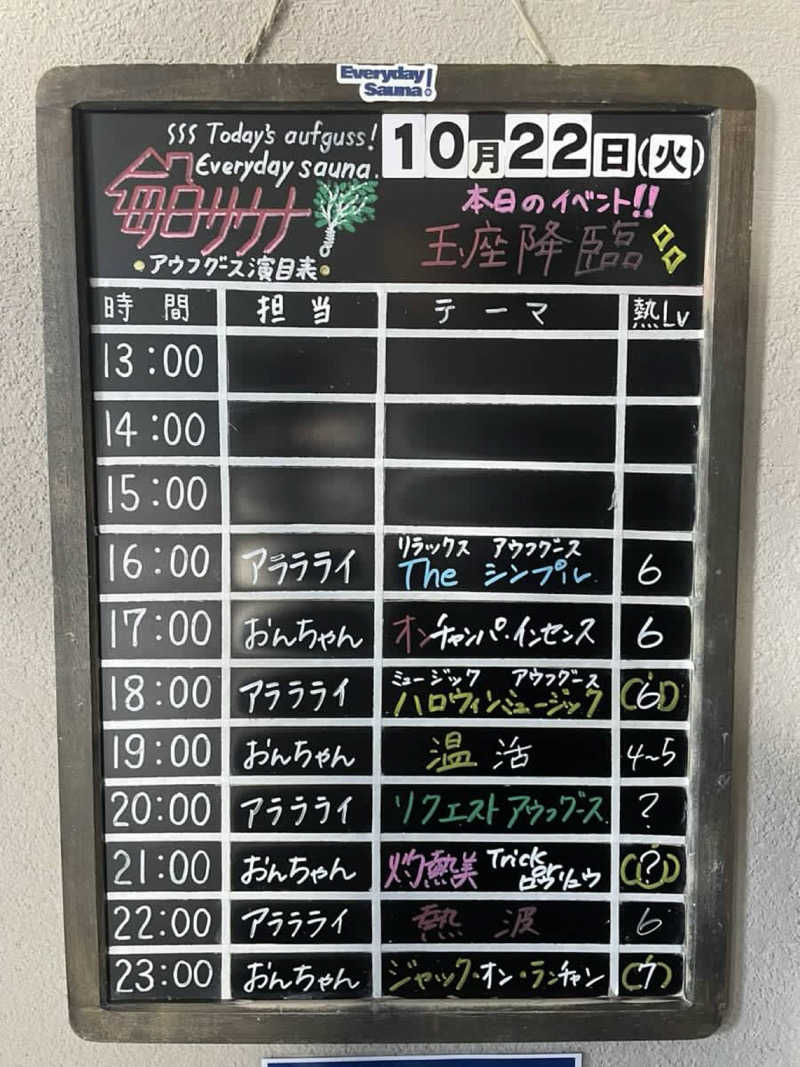 Everyday Sauna!
Today's aufguss!
Everyday sauna.
10月22日(火)
毎日サウナ
本日のイベント!!
玉座降臨
アウフグース演目表
時間 担当 テーマ 熱Lv
13:00
14:00
15:00
リラックス アウフグース
16:00 アララライ The シンプル 6
17:00 おんちゃん オンチャンパ・インセンス 6
ミュージック アウフグース
18:00 アララライ ハロウィンミュージック 6
19:00 おんちゃん 温活 4~5
20:00 アララライ リクエストアウフグース ?
21:00 おんちゃん 灼熱美 Trick ?
22:00 アララライ 熱波 6
23:00 おんちゃん ジャック・オン・ランチャン 7